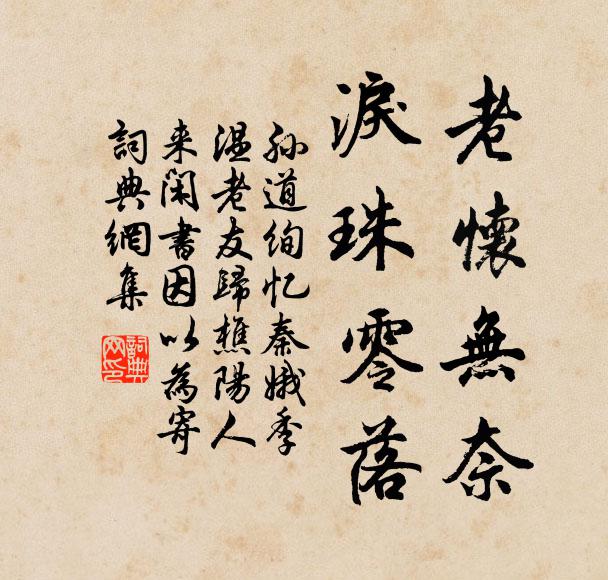 老懷無奈
淚珠零落
孙道绚忆秦娥季
温老友歸樵陽人
来闲書因以為寄
詞典網集
詞典網印